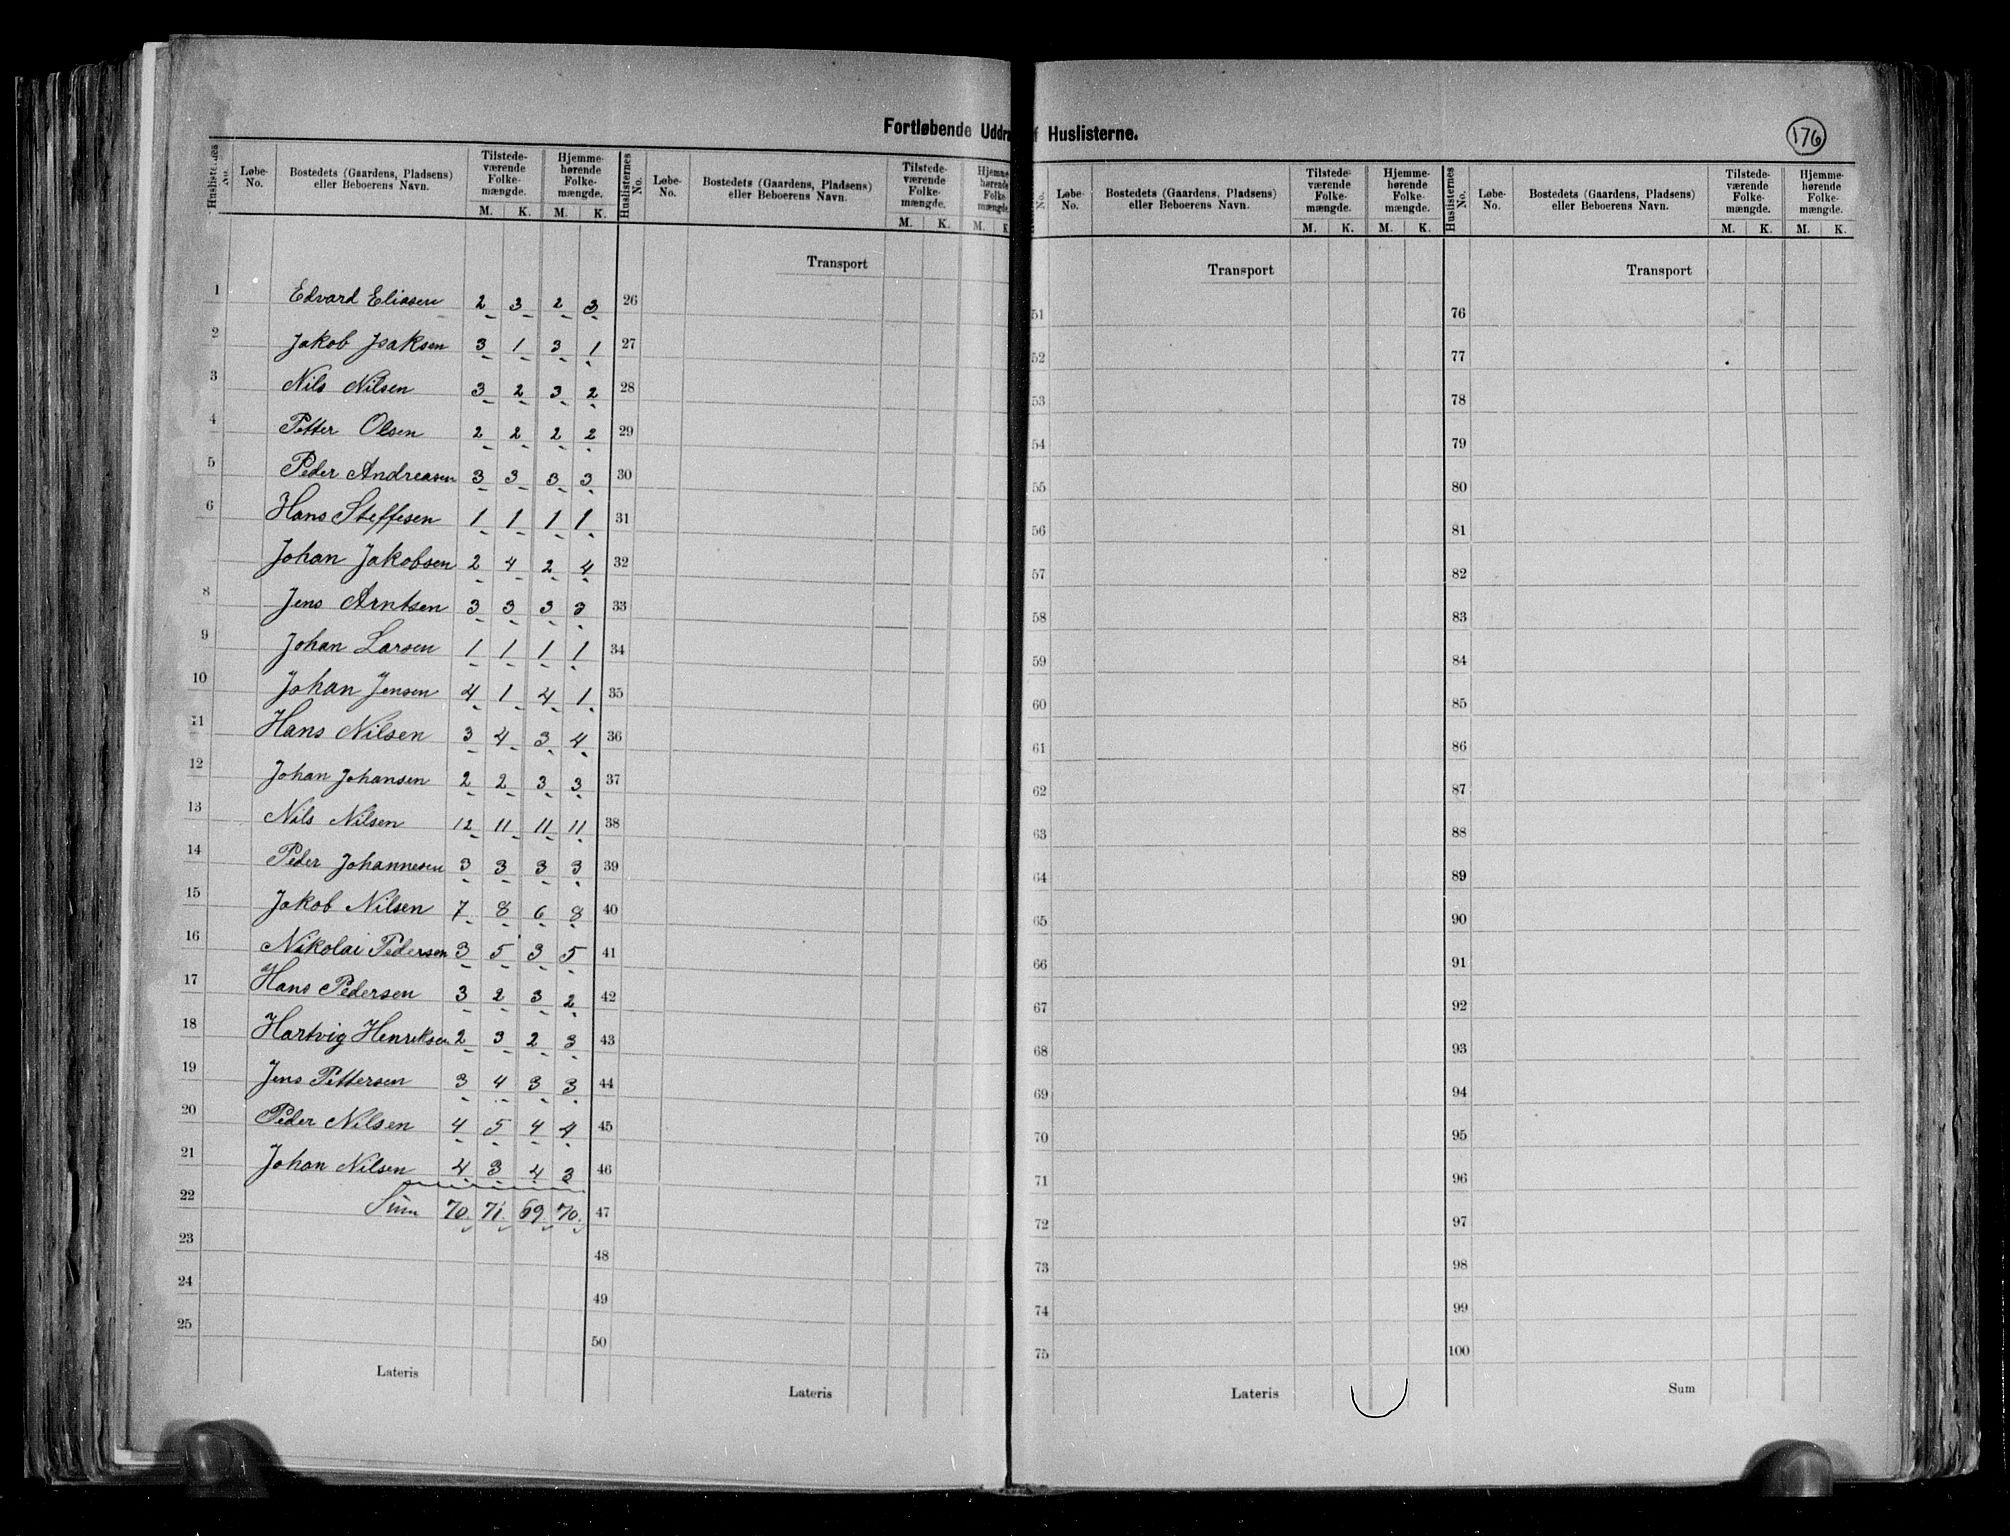 Fortløbende Uddr f Huslisterne.
176
Huslisternes No. Løbe-No. Bostedets (Gaardens, Pladsens) eller Beboerens Navn. Tilstedeværende Folkemængde. M. K. Hjemmehørende Folkemængde. M. K.
Huslisternes No. Løbe-No. Bostedets (Gaardens, Pladsens) eller Beboerens Navn. Tilstedeværende Folkemængde. M. K. Hjemmehørende Folkemængde. M. K.
No. Løbe-No. Bostedets (Gaardens, Pladsens) eller Beboerens Navn. Tilstedeværende Folkemængde. M. K. Hjemmehørende Folkemængde. M. K.
Huslisternes No. Løbe-No. Bostedets (Gaardens, Pladsens) eller Beboerens Navn. Tilstedeværende Folkemængde. M. K. Hjemmehørende Folkemængde. M. K.
Transport Transport Transport
1 Edvard Eliasen 2 3 2 3 26 51 76
2 Jakob Isaksen 3 1 3 1 27 52 77
3 Nils Nilsen 3 2 3 2 28 53 78
4 Petter Olsen 2 2 2 2 29 54 79
5 Peder Andreasen 3 3 3 3 30 55 80
6 Hans Steffesen 1 1 1 1 31 56 81
Johan Jakobsen 2 4 2 4 32 57 82
8 Jens Arntsen 3 3 3 3 33 58 83
9 Johan Larsen 1 1 1 1 34 59 84
10 Johan Jensen 4 1 4 1 35 60 85
11 Hans Nilsen 3 4 3 4 36 61 86
12 Johan Johansen 2 2 3 3 37 62 87
13 Nils Nilsen 12 11 11 11 38 63 88
14 Peder Johannesen 3 3 3 3 39 64 89
15 Jakob Nilsen 7 8 6 8 40 65 90
16 Nikolai Pedersen 3 5 3 5 41 66 91
17 Hans Pedersen 3 2 3 2 42 67 92
18 Hartvig Henriksen 2 3 2 3 43 68 93
19 Jens Pettersen 3 4 3 3 44 69 94
20 Peder Nilsen 4 5 4 4 45 70 95
21 Johan Nilsen 4 3 4 3 46 71 96
22 Sum 70 71 69 70 47 72 97
23 48 73 98
24 49 74 99
25 50 75 100
Lateris Lateris Lateris Sum